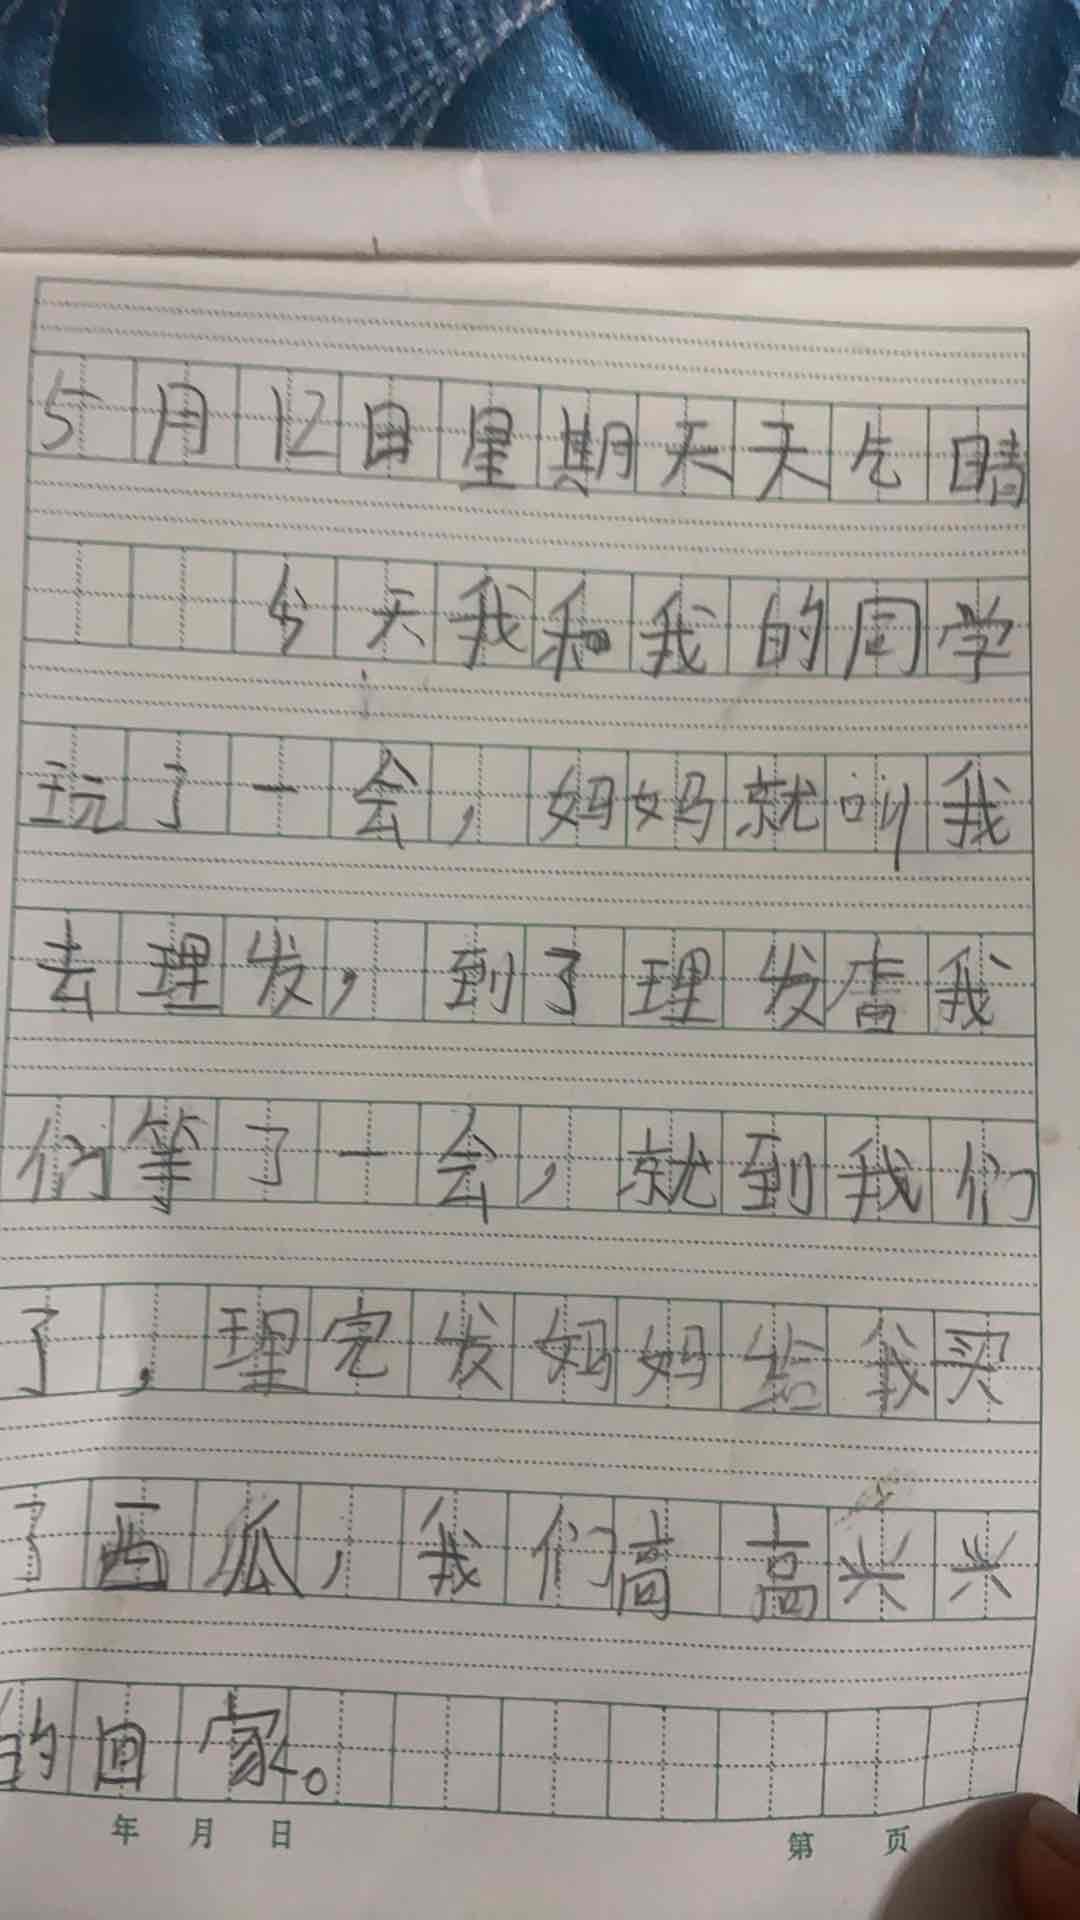 5月12日星期天天气晴
今天我和我的同学
玩了一会，妈妈就叫我
去理发，到了理发店我
们等了一会，就到我们
了，理完发妈妈给我买
了西瓜，我们高高兴兴
的回家。
年 月 日 第 页